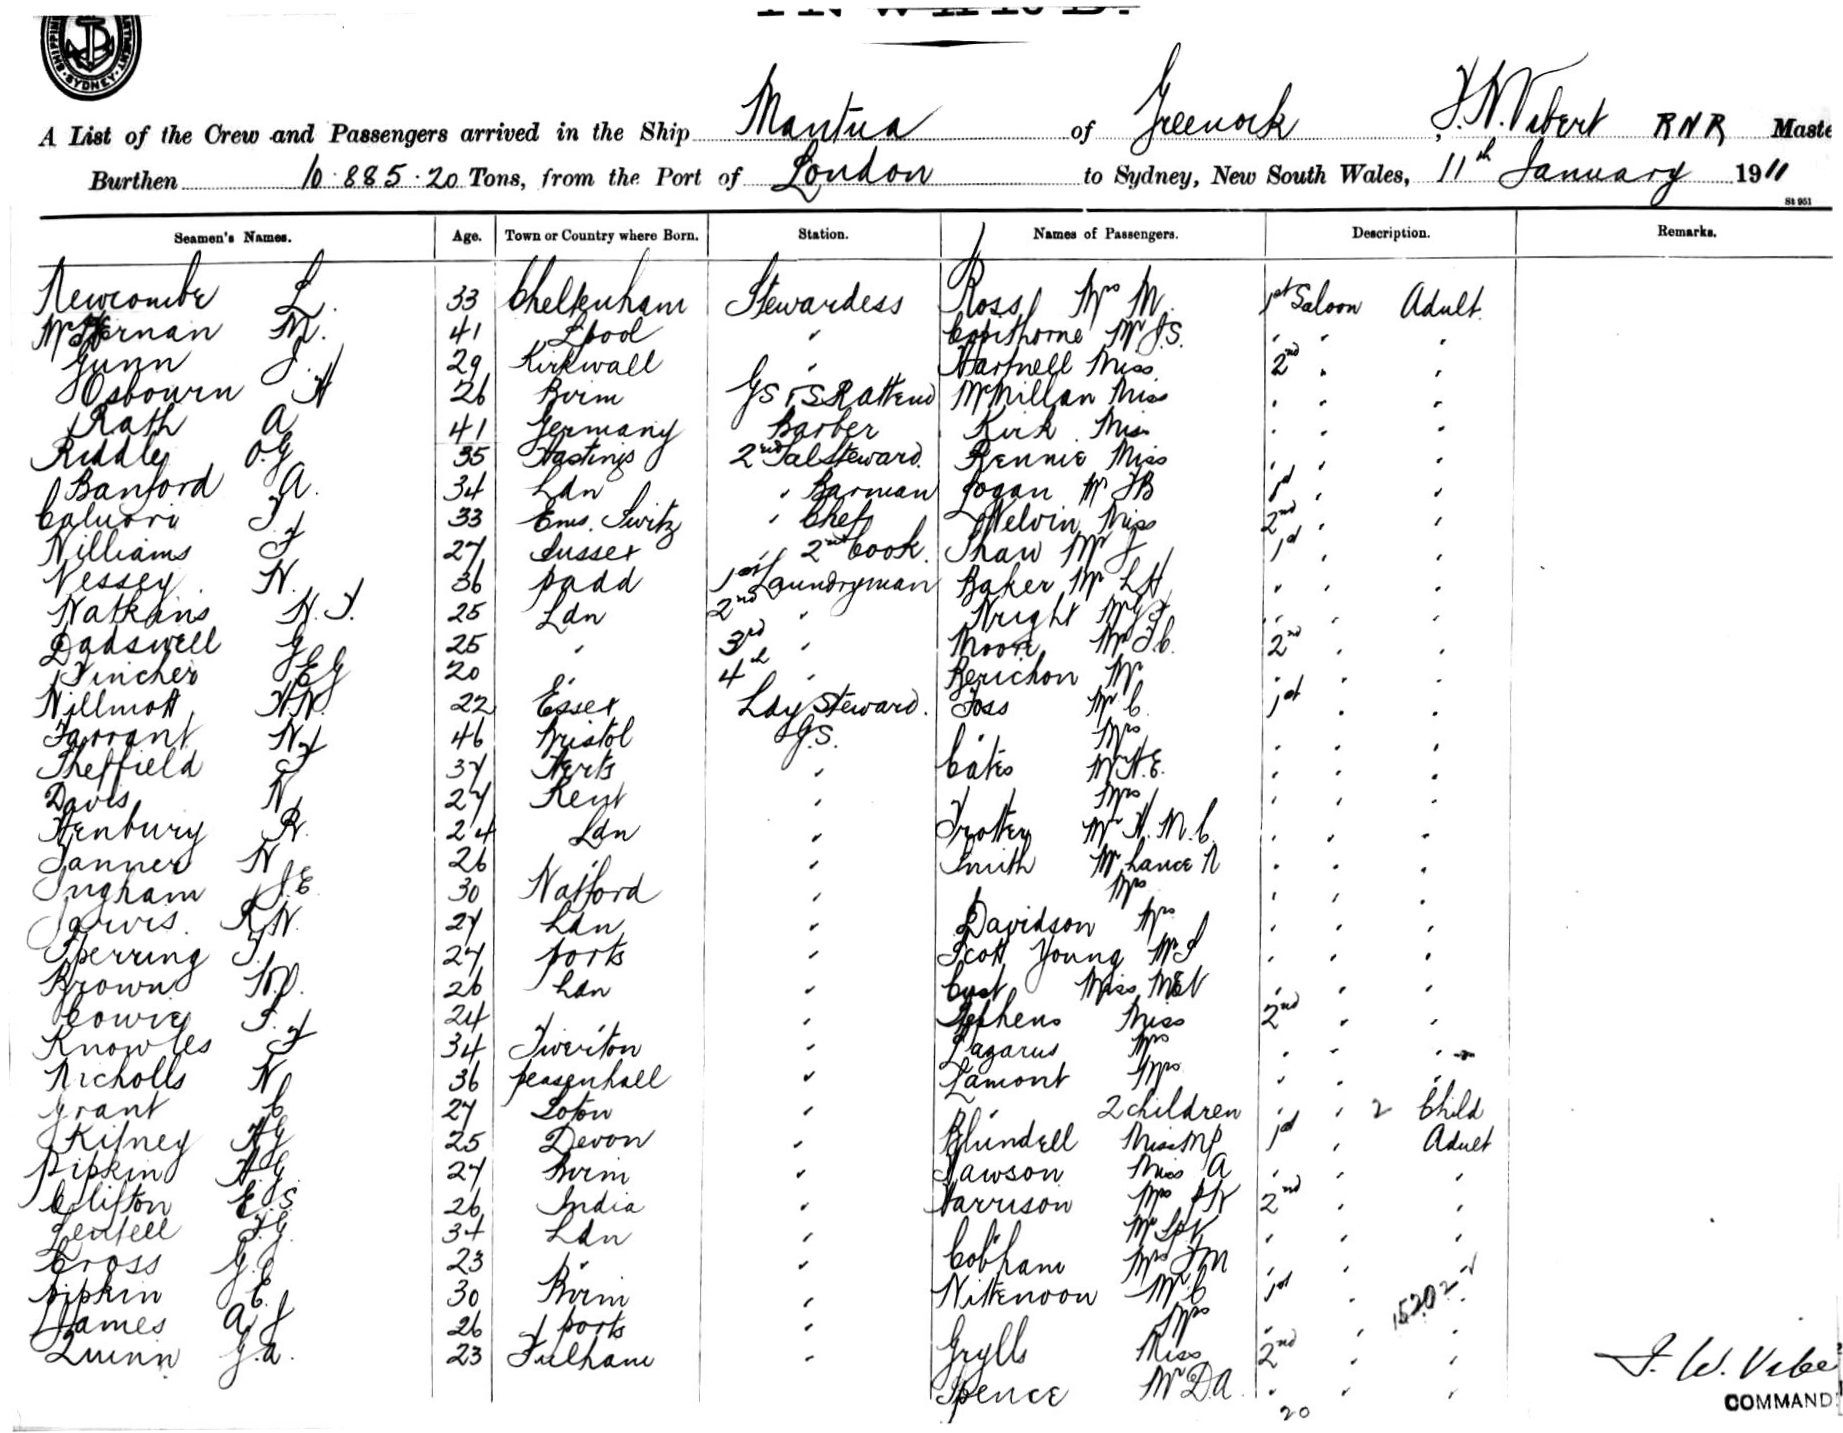 INWARD.
SHIPPING SYDNEY
A List of the Crew and Passengers arrived in the Ship Mantua of Greenock, F.W. Vibert RNR Maste
Burthen 10.885.20 Tons, from the Port of London to Sydney, New South Wales, 11th January 1911
St 951
Seamen's Names. Age. Town or Country where Born. Station. Names of Passengers. Description. Remarks.
Newcombe L. 33 Cheltenham Stewardess Ross Mrs M. 1st Saloon Adult.
41 Lpool " Mr J.S. " " "
Gunn J. 29 Kirkwall " Hartnell Miss 2nd " "
Osbourn H 26 Birm McMillan Miss " " "
Rath A 41 Germany Barber Kirk Miss " " "
Riddle O.G 35 Hastings 2nd Sal Steward. Rennie Miss " " "
Banford A. 34 Ldn " Barman Logan Mr 1st " "
33 Switz " Chef Melvin Miss 2nd " "
Williams F 27 Sussex " 2nd Cook. Shaw Mr J 1st " "
Vessey W. 36 Padd 1st Laundryman Baker Mr L H " " "
Watkins W.T. 25 Ldn 2nd " Wright Mr " " "
Dadswell G 25 " 3rd " Moore Mr 2nd " "
Fincher E G 20 " 4th " Berichon Mr " " "
Willmott H.W. 22 Essex Ldy Steward. Foss Mr C. 1st " "
Tarrant W F 46 Bristol G.S. " Mrs " " "
Sheffield F 37 Herts " Cates Mr H.E. " " "
Davis W 27 Kent " " Mrs " " "
Henbury R. 24 Ldn " Trotter Mr H.M.C. " " "
Tanner W 26 " " Smith Mr Lance N " " "
Ingham J.E. 30 Watford " " Mrs " " "
Jarvis. R.W. 27 Ldn " Davidson Mrs " " "
Sperring T. 27 Ports " Scott Young Mr S " " "
Brown W.D. 26 Ldn " Cust Miss " " "
Cowie T. 24 " " Stephens Miss 2nd " "
Knowles F 34 Tiverton " Lazarus Mrs " " "
Nicholls W 36 Peasenhall " Lamont Mrs " " "
Grant C 27 Soton " " 2 children " " 2 Child
Kifney H G 25 Devon " Blundell Miss M P 1st " Adult
Pipkin H.G. 27 Birm " Lawson Miss A " " "
Clifton E.S. 26 India " Harrison Mrs 2nd " "
Lentell F.G. 34 Ldn " " Mr " " "
Cross G.J 23 " " Cobham Mrs F M " " "
Pipkin E. 30 Birm " Wittenoon Mr C 1st " "
James A J 26 Ports " " Mrs " " "
Quinn G.A. 23 Fulham " Grylls Miss 2nd " "
Spence Mr D A. " " "
20
15202
F. W. Vibe
COMMAND